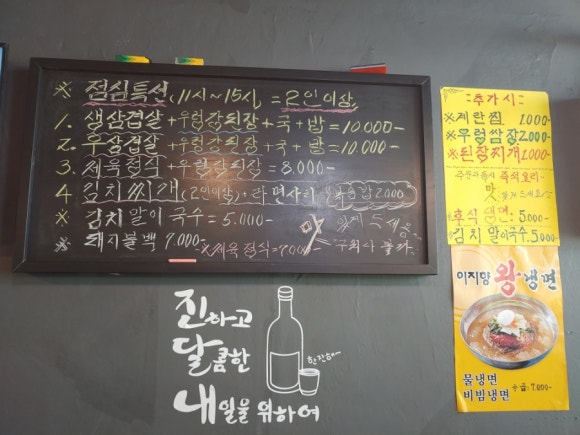 ※ 점심특선 (11시~15시) = 2인이상
1. 생삼겹살 + 우렁강된장 + 국 + 밥 = 10.000-
2. 우삼겹살 + 우렁강된장 + 국 + 밥 = 10.000-
3. 제육정식 + 우렁강된장 = 8.000-
4 김치찌개 (2인이상) + 라면사리 2000
※ 김치말이국수 = 5.000-
※ 돼지불백 7.000- ※제육정식=7000-
진하고
달콤한
내일을 위하여
한잔해~
추가시
※계란찜 1000
※우렁쌈장 2,000
※된장찌개 1000
주문과 동시 즉석요리
맛
후식냉면 5,000-
김치말이국수 5.000
이지양 왕냉면
물냉면
비빔냉면 7.000-